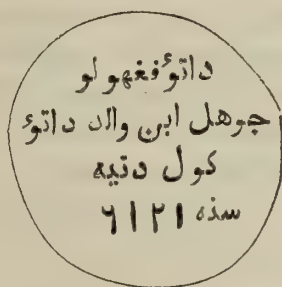 داتوٴ فغهولو
جوهل ابن والد داتوٴ
كول دتيه
سنه ١٢١٦